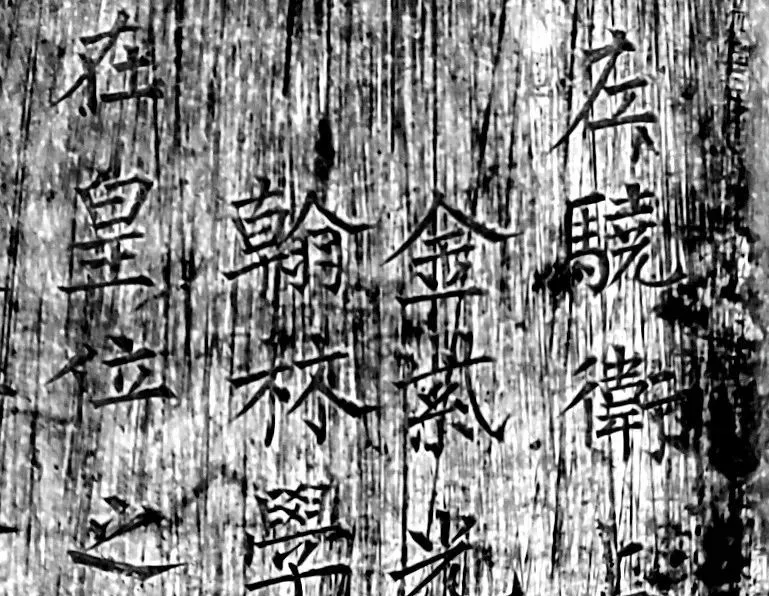 左驍衛
金紫光
翰林學
在皇位之